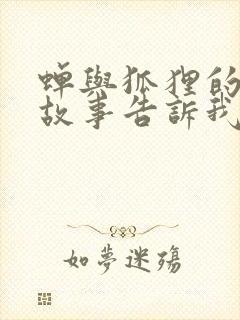 蟬與狐狸的
故事告訴我
如夢迷殤